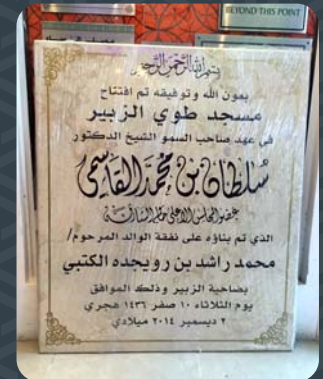 BEYOND THIS POINT
بسم الله الرحمن الرحيم
بعون الله وتوفيقه تم افتتاح
مسجد طوي الزبير
في عهد صاحب السمو الشيخ الدكتور
سلطان بن محمد القاسمي
عضو المجلس الأعلى حاكم الشارقة
الذي تم بناؤه على نفقة الوالد المرحوم/
محمد راشد بن رويجده الكتبي
بضاحية الزبير وذلك الموافق
يوم الثلاثاء ١٠ صفر ١٤٣٦ هجري
٢ ديسمبر ٢٠١٤ ميلادي